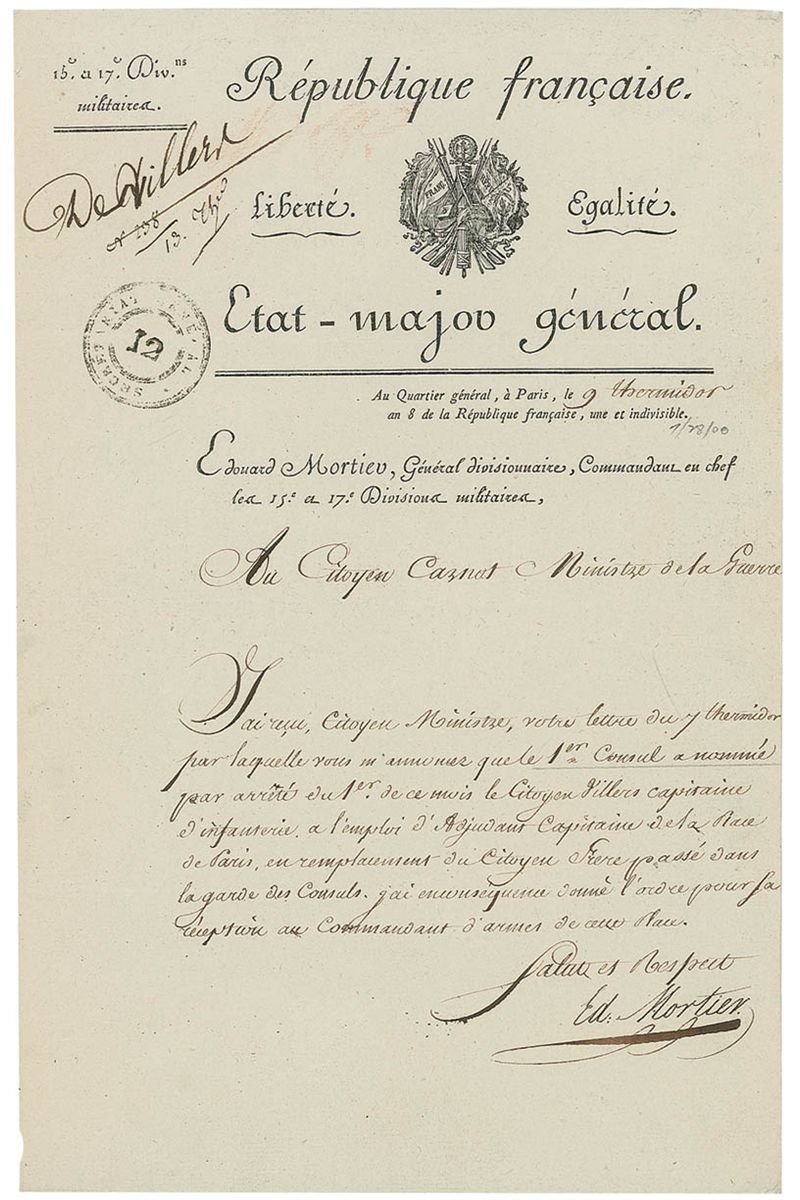 15e. et 17e. Div.ns
militaires.
République française.
De Villers
N 158
13. Ther
Liberté.
Egalité.
Etat-major général.
SECRETARIAT GENERAL
12
Au Quartier général, à Paris, le 9 thermidor
an 8 de la République française, une et indivisible.
7/28/00
Edouard Mortier, Général divisionnaire, Commandant en chef
les 15.e et 17.e Divisions militaires,
Au Citoyen Carnot Ministre de la Guerre
J'ai reçu, Citoyen Ministre, votre lettre du 7 thermidor
par laquelle vous m'annoncez que le 1er Consul a nommé
par arrêté du 1er. de ce mois le Citoyen Villers capitaine
d'infanterie a l'emploi d'Adjudant Capitaine de la Place
de Paris, en remplacement du Citoyen Frere passé dans
la garde des Consuls. j'ai en conséquence donné l'ordre pour sa
réception au Commandant d'armes de cette Place.
Salut et Respect
Ed. Mortier